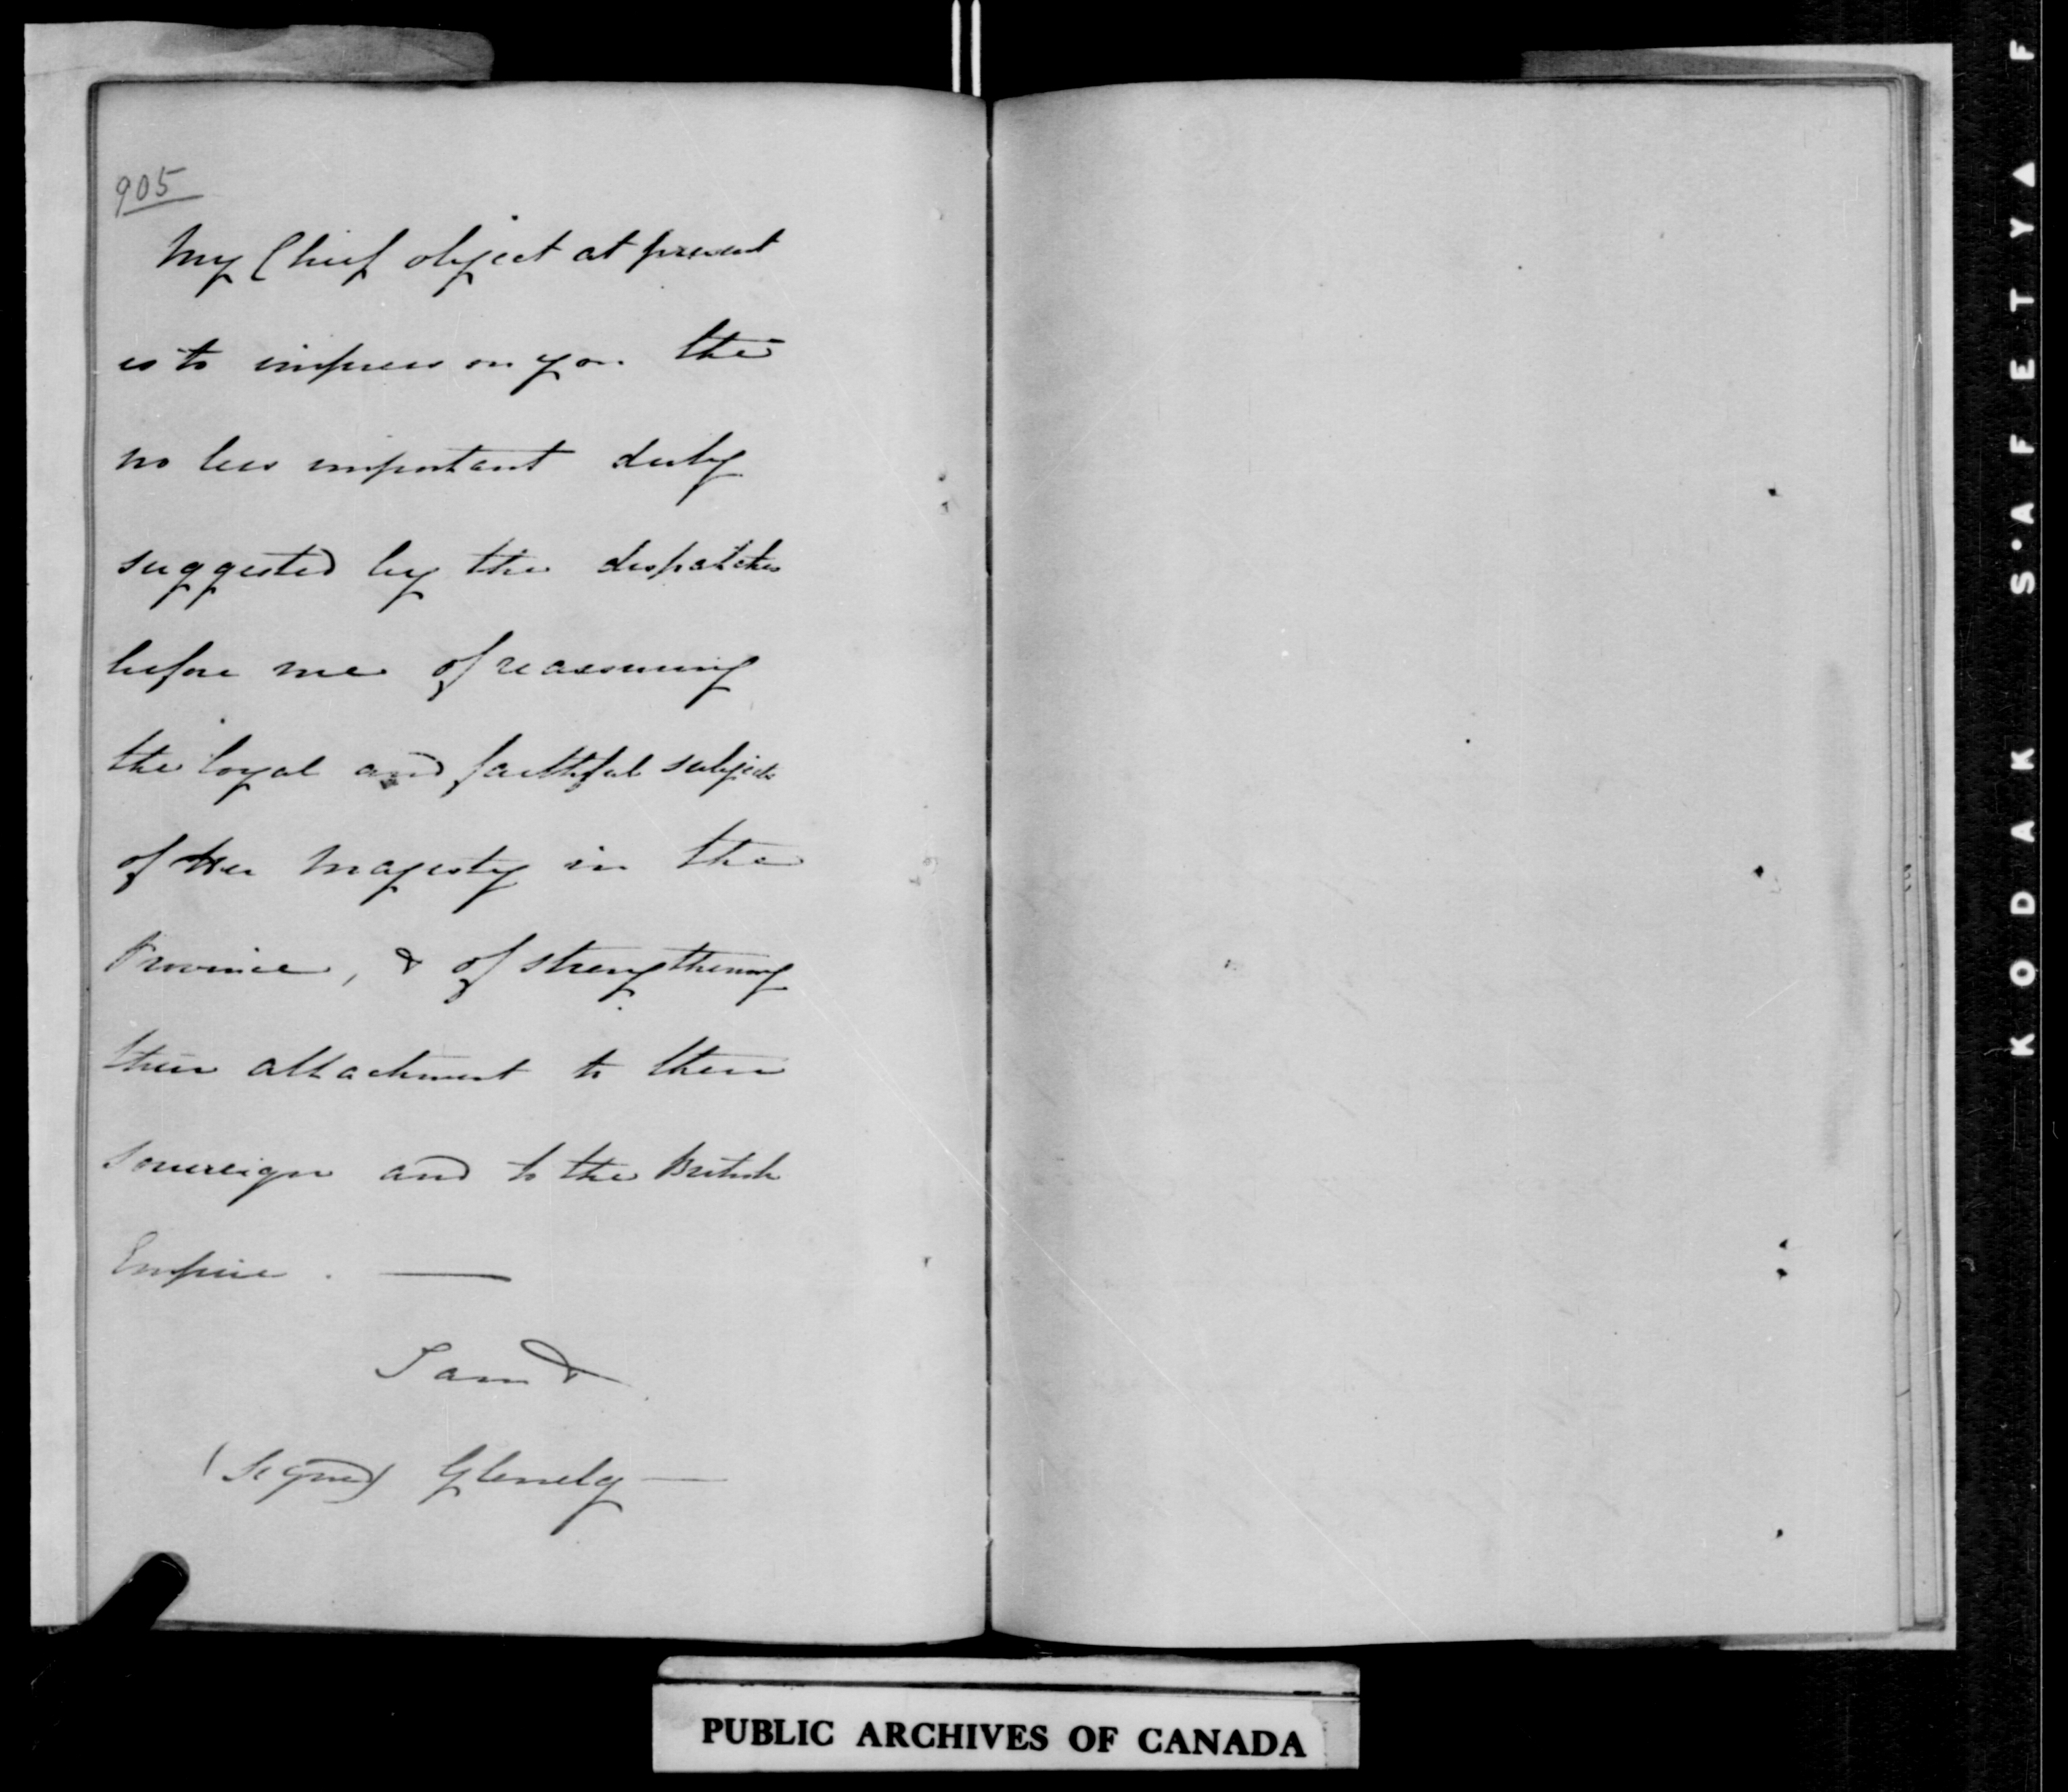 905
My Chief object at present
is to impress on you the
no less important duty
suggested by the despatches
before me of reassuring
the loyal and faithful subjects
of Her Majesty in the
Province, & of strengthening
their attachment to their
Sovereign and to the British
Empire. —
I am &
(Signed) Glenelg —
PUBLIC ARCHIVES OF CANADA
KODAK S·AFETY▲ F